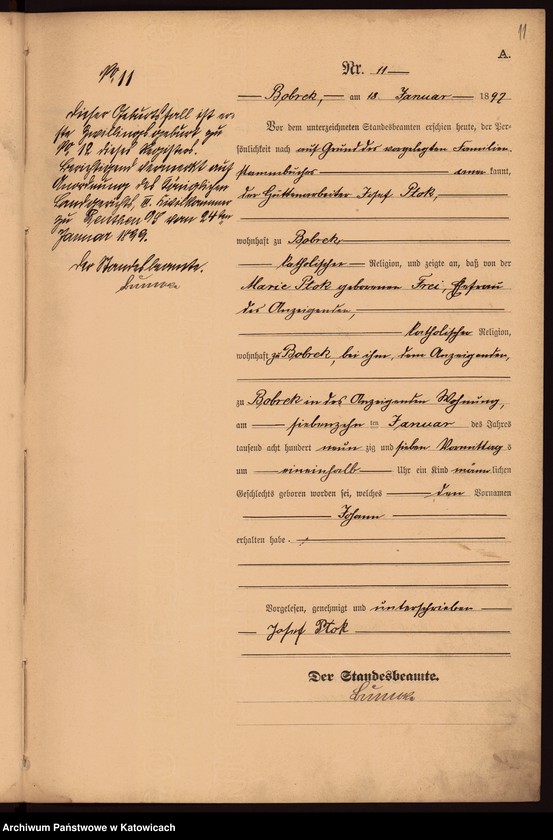 11
A.
Nr. 11
Bobrek, am 18 Januar 1897
Vor dem unterzeichneten Standesbeamten erschien heute, der Per-
sönlichkeit nach auf Grund des vorgelegten Familien
stammbuches kannt,
der Hüttenarbeiter Josef Ptok,
wohnhaft zu Bobrek
katholischer Religion, und zeigte an, daß von der
Marie Ptok geborenen Frei, Ehefrau
des Anzeigenden,
katholischer Religion,
wohnhaft zu Bobrek, bei ihm, dem Anzeigenden,
zu Bobrek in des Anzeigenden Wohnung,
am siebenzehn ten Januar des Jahres
tausend acht hundert neun zig und sieben Vormittag s
um eineinhalb Uhr ein Kind männlichen
Geschlechts geboren worden sei, welches den Vornamen
Johann
erhalten habe.
Vorgelesen, genehmigt und unterschrieben
Josef Ptok
Der Standesbeamte.
No 11
Dieser Geburtsfall ist er-
ste Zwillingsgeburt zu
No 12 dieses Registers.
Berichtigend vermerkt auf
Anordnung des Königlichen
Landgerichts, Civilkammer
zu Beuthen OS vom 24 ten
Januar 1899.
Der Standesbeamte.
Archiwum Państwowe w Katowicach